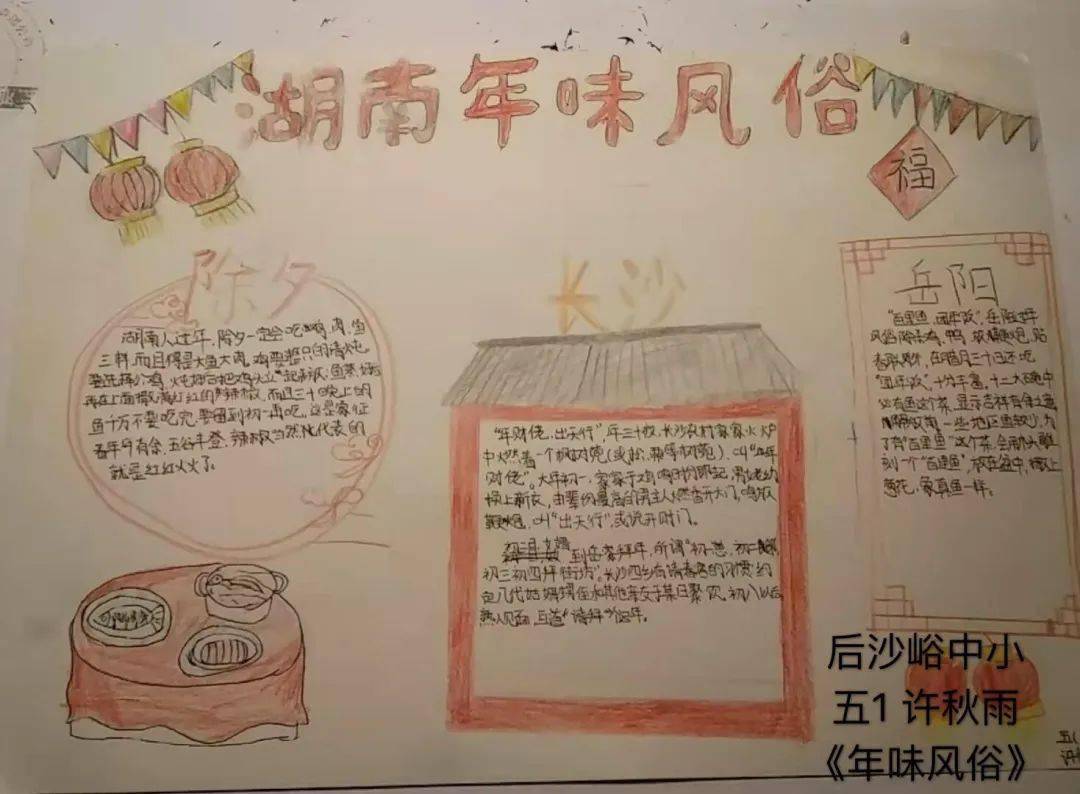 湖南年味风俗
福
除夕
湖南人过年，除夕一定会吃鸡、肉、鱼
三样，而且得是大鱼大肉，鸡要整只的清炖
再在上面撒满红红的辣椒，而且三十晚上的
鱼千万不要吃完，要留到初一再吃，这是象征
着年年有余、五谷丰登，辣椒当然代表的
就是红红火火了。
长沙
"年财佬，出天行"年三十夜，长沙农村家家火炉
中燃着一个树蔸，叫"年
财佬"。大年初一，家家于鸡鸣时即起，男女老幼
换上新衣，由辈份最高的男主人燃香开大门，鸣放
叫"出天行"，或说开财门。
到岳家拜年，所谓"初一崽，初二郎，
初三初四拜街坊"。长沙四乡有请春客的习惯，约
定几代姑妈婿侄和其他亲友于某日聚饮，初八以后
熟人见面，互道"请拜个迟年。
岳阳
"百里鱼，团年饭"，岳阳过年
风俗除杀鸡、鸭、放鞭炮，贴
春联外，在腊月三十日还吃
"团年饭"，十分丰富，十二大碗中
必有鱼这个菜，显示吉祥有余之意
一些地区鱼较少，为
了有"百里鱼"这个菜，会用木雕
刻一个"百里鱼"，放在盆中，撒上
葱花，象真鱼一样。
后沙峪中小
五1 许秋雨
《年味风俗》